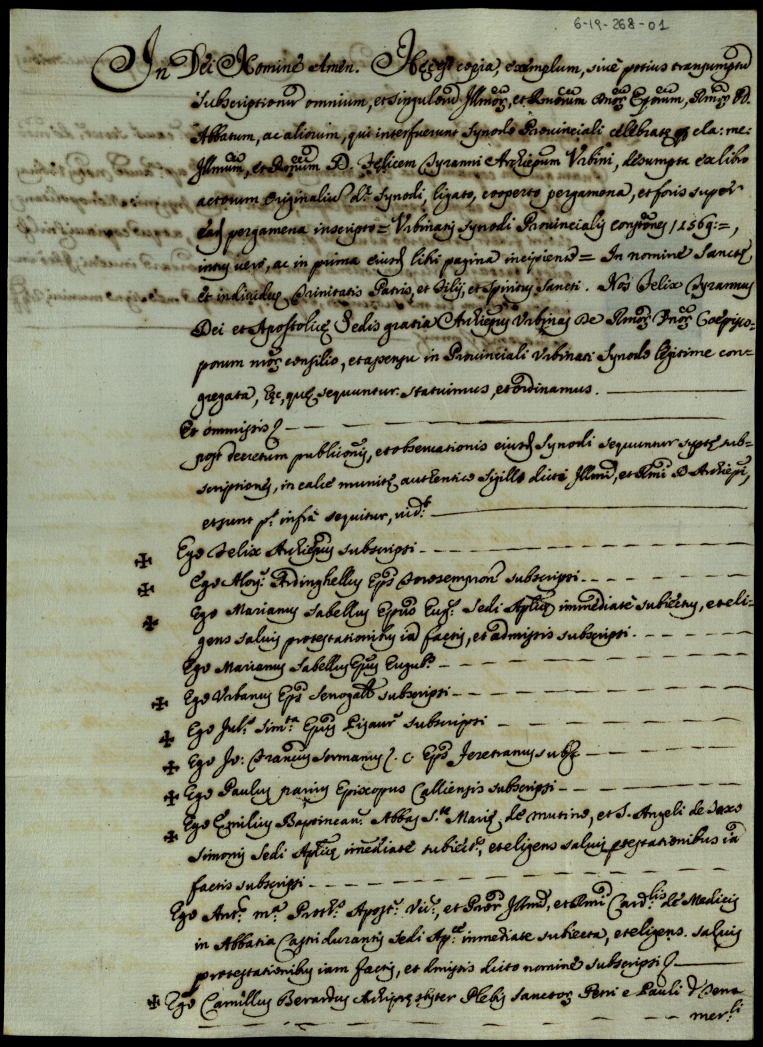 6-19-268-01
In Dei Nomine Amen. Hęc est copia, exemplum, sive potius transumptũ
subscriptionũ omnium, et singulorũ Illmoȓ, et Rmorum Dnoȓ Eporum, Rmoȓ DD.
Abbatum, ac aliorum, qui interfuerunt synodo Provinciali celebratę cla: me:
Illmum, et Rmum D. Felicem Tyrannũ Archiepum Urbini, desumpta ex libro
actorum originaliũ dę Synodi, ligato, cooperto pergamena, et foris super
eadẽ pergamena inscripto = Urbinatis synodi Provincialis constiones 1569: =,
intus vero, ac in prima eiusdẽ libri pagina incipiente = In nomine Sanctę,
et individuę Trinitatis Patris, et Filij, et Spiritus Sancti. Nos Felix Tyrannus
Dei et Apostolicę Sedis gratia Archiepus Urbinas De Rmoȓ Dnoȓ Coepisco-
porum nroȓ consilio, et assensu in Provinciali Urbinati Synodo legitime con-
gregata, hęc, quę sequuntur statuimus, et ordinamus.
Et ommissis
post decretum publicõnis, et observationis eiusdẽ Synodi sequuntur sub-
scriptiones, in calce munitę authentico sigillo dicti Illmi, et Rmi D Archiepi,
et sunt pt infrà sequitur, vidt
Ego Felix Archiepus subscripsi
Ego Aloys Ardinghellus Eps Forosempron subscripsi
Ego Marianus Sabellus Epus Eug. Sedi Aplicę immediatè subiectus, et eli-
gens salvis protestationibus iã factis, et admissis subscripsi
Ego Marianus Sabellus Epus Eugub.
Ego Urbanus Eps Senogall subscripsi
Ego Jul. Simta Epus Pisaur subscripsi
Ego Jo: Francus Sormanus . C. Eps Feretranus subs
Ego Paulus Episcopus Calliensis subscripsi
Ego Emilius Abbas S. te Marię de mutino, et S. Angeli de Saxo
simonis Sedi Aplicę imediatè subiect, et eligens salvis ptestationibus iã
factis subscripsi
Ego Ant. ma Prot. Apost. Vic, et Illmi, et Rmi Cardlis de Medicis
in Abbatia Castridurantis Sedi Ap.cę immediate subiecta, et eligens salvis
protestationibus iam factis, et dmissis dicto nomine subscripsi
Ego Camillus Berardus Archipresbyter Plebis Sanctoȓ Petri e Pauli
mer.li